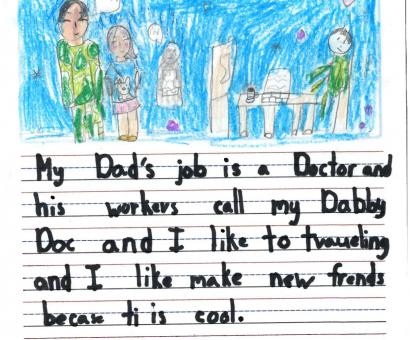 My Dad's job is a Doctor and
his workers call my Dabby
Doc and I like to traueling
and I like make new frends
becase ti is cool.